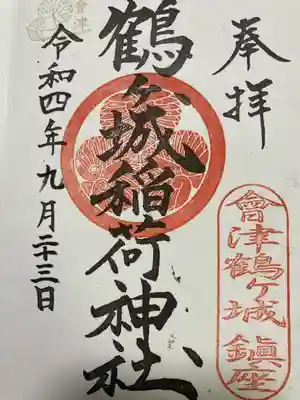 奉拝
會津鶴ヶ城鎮座
鶴ヶ城稲荷神社
令和四年九月二十三日
會津